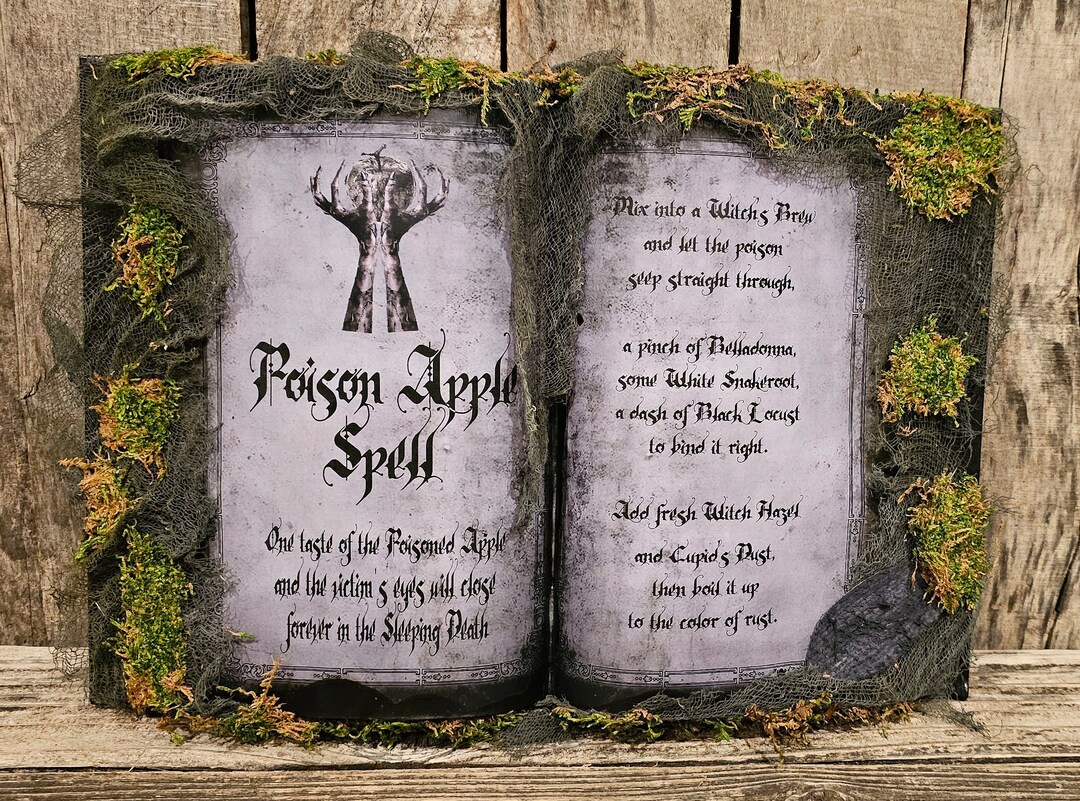 Poison Apple
Spell
One taste of the Poisoned Apple
and the victim's eyes will close
forever in the Sleeping Death
Mix into a Witch's Brew
and let the poison
seep straight through,
a pinch of Belladonna,
some White Snakeroot,
a dash of Black Locust
to bind it right.
Add fresh Witch Hazel
and Cupid's Dust,
then boil it up
to the color of rust.